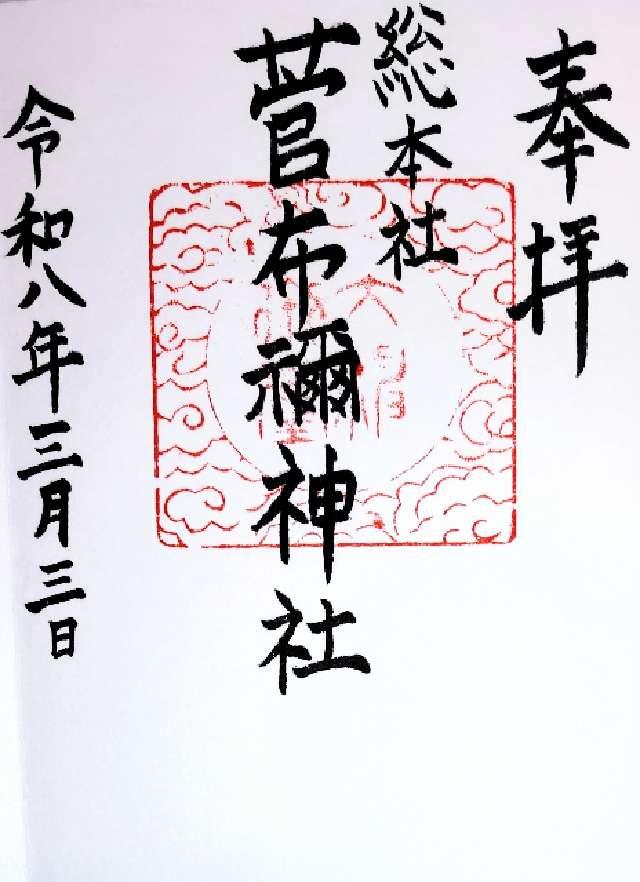 奉拝
総本社
菅布禰神社
令和八年三月三日